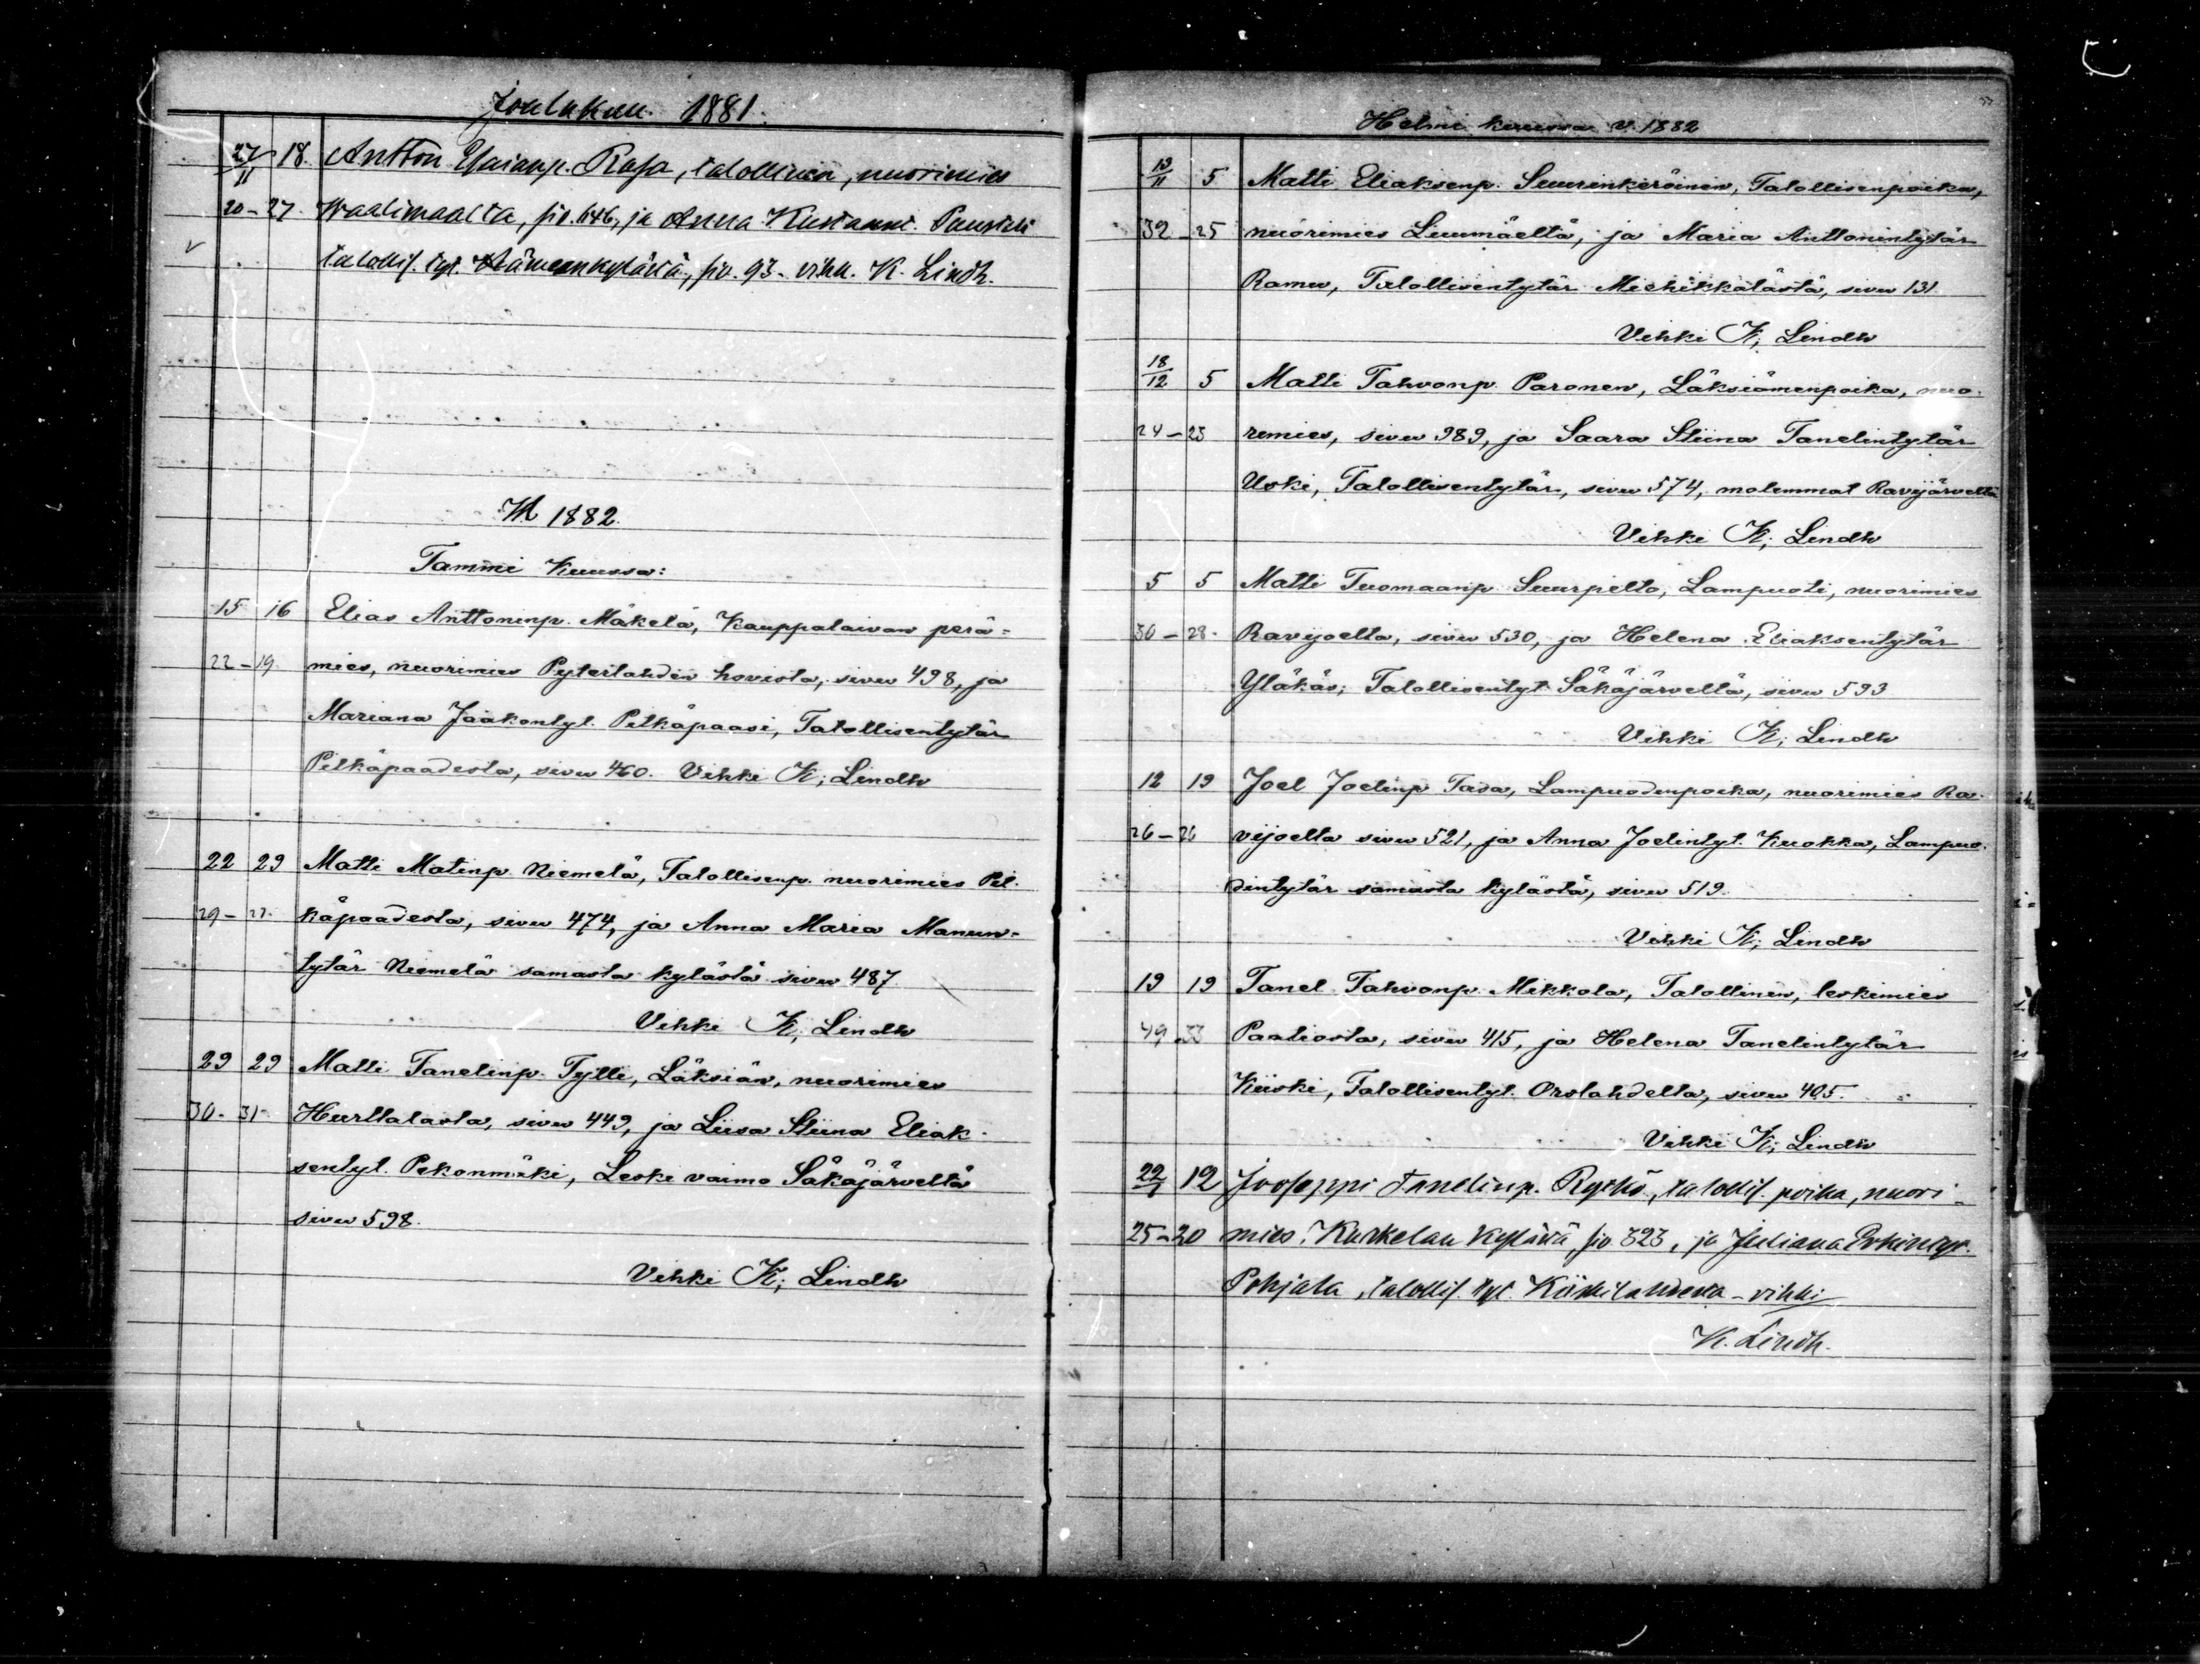 Joulukuu. 1881.
27/11 18. Anttoni Esaianp. Rasa, talollinen, nuorimies
20-27. Waalimaalta, siv. 646, ja Anna Kustaant. Paustali
talollis. tyt. Hämeenkylästä, siv. 93. vihk. K. Lindh.
V 1882.
Tammi Kuussa:
15 16 Elias Anttoninp. Mäkelä, Kauppalaivan perä=
22-19. mies, nuorimies Pyterlahden hovista, sivu 498, ja
Mariana Jaakontyt. Pitkäpaasi, Talollisentytär
Pitkäpaadesta, sivu 460. Vihki K; Lindh
22 29 Matti Matinp. Niemelä, Talollisenp. nuorimies Pit-
29-27. käpaadesta, sivu 474, ja Anna Maria Manun-
tytär Niemelä samasta kylästä sivu 487.
Vihki K; Lindh
29 29 Matti Tanelinp. Tylli, Läksiän, nuorimies
30-31- Hurttalasta, sivu 449, ja Liisa Stiina Eliak-
sentyt. Pekonmäki, Leski vaimo Säkäjärveltä
sivu 598.
Vihki K; Lindh
Helmi kuussa v. 1882
13/11 5 Matti Eliaksenp. Suurinkeröinen, Talollisenpoika,
32-25 nuorimies Luumäeltä, ja Maria Anttonintytär
Ramu, Talollisentytär Miehikkälästä, sivu 131.
Vihki K; Lindh
18/12 5 Matti Tahvonp. Paronen, Läksiämenpoika, nuo-
24-23 rimies, sivu 989, ja Saara Stiina Tanelintytär
Uski, Talollisentytär, sivu 574, molemmat Ravijärveltä
Vihki K; Lindh
5 5 Matti Tuomaanp. Suurpelto, Lampuoti, nuorimies
30-28- Ravijoelta, sivu 530, ja Helena Eliaksentytär
Yläkäs; Talollisentyt. Säkäjärveltä, sivu 593
Vihki K; Lindh
12 19 Joel Joelinp. Tasa, Lampuodinpoika, nuorimies Ra-
26-26 vijoelta sivu 521, ja Anna Joelintyt. Kuokka, Lampuo-
dintytär samasta kylästä, sivu 519.
Vihki K; Lindh
19 19 Tanel Tahvonp. Mikkola, Talollinen, leskimies
49-33 Paatiosta, sivu 415, ja Helena Tanelintytär
Kiiski, Talollisentyt. Orslahdelta, sivu 405.
Vihki K; Lindh
22/1 12 Jooseppi Tanelinp. Ryrkö, talollis. poika, nuori-
25-20 mies. Kurkelan kylästä, siv. 323, ja Juliana Erkintyt.
Pohjala, talollis. tyt. Kiiskilahdesta - vihki
K. Lindh.